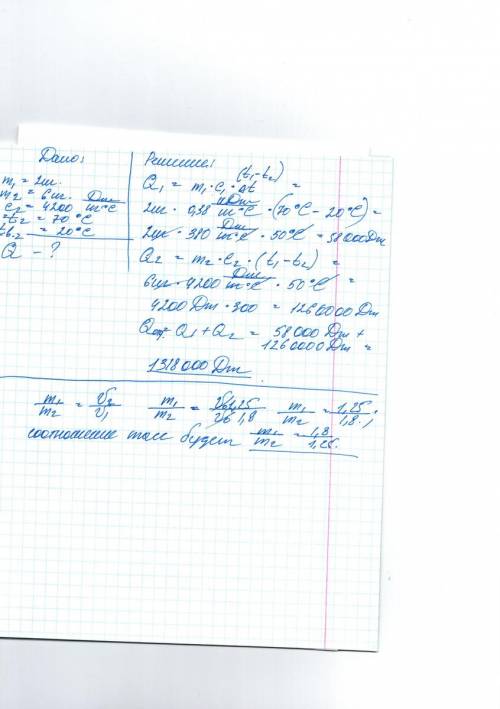 Дано:
m₁ = 2кг.
m₂ = 6кг.
c₂ = 4200 Дж/кг°С
t₂ = 70°С
t₂ = 20°С
Q - ?
Решение:
(t₁-t₂)
Q₁ = m₁·c₁·Δt =
2кг · 0,38 кДж/кг°С · (70°С - 20°С) =
2кг · 380 Дж/кг°С · 50°С = 58000Дж
Q₂ = m₂·c₂·(t₁-t₂) =
6кг · 4200 Дж/кг°С · 50°С =
4200 Дж · 300 = 1260000 Дж
Q = Q₁ + Q₂ = 58000 Дж +
1260000 Дж =
1318000 Дж
m₁/m₂ = v₂/v₁ m₁/m₂ = 1,25/1,8 m₁/m₂ = 1,25/1,8
соотношение масс будет m₁/m₂ = 1,8/1,25.